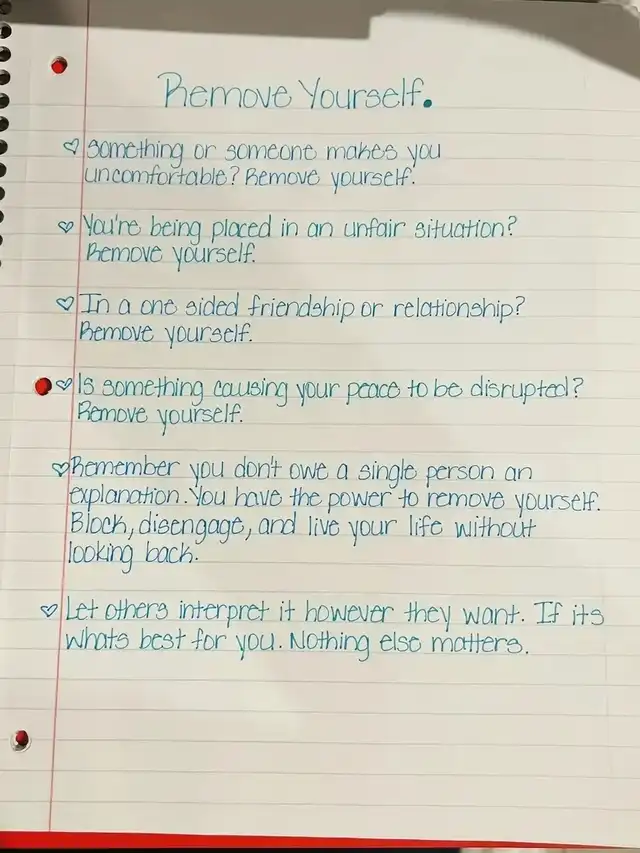 Remove Yourself.
Something or someone makes you
uncomfortable? Remove yourself.
You're being placed in an unfair situation?
Remove yourself.
In a one sided friendship or relationship?
Remove yourself.
Is something causing your peace to be disrupted?
Remove yourself.
Remember you don't owe a single person an
explanation. You have the power to remove yourself.
Block, disengage, and live your life without
looking back.
Let others interpret it however they want. If its
whats best for you. Nothing else matters.